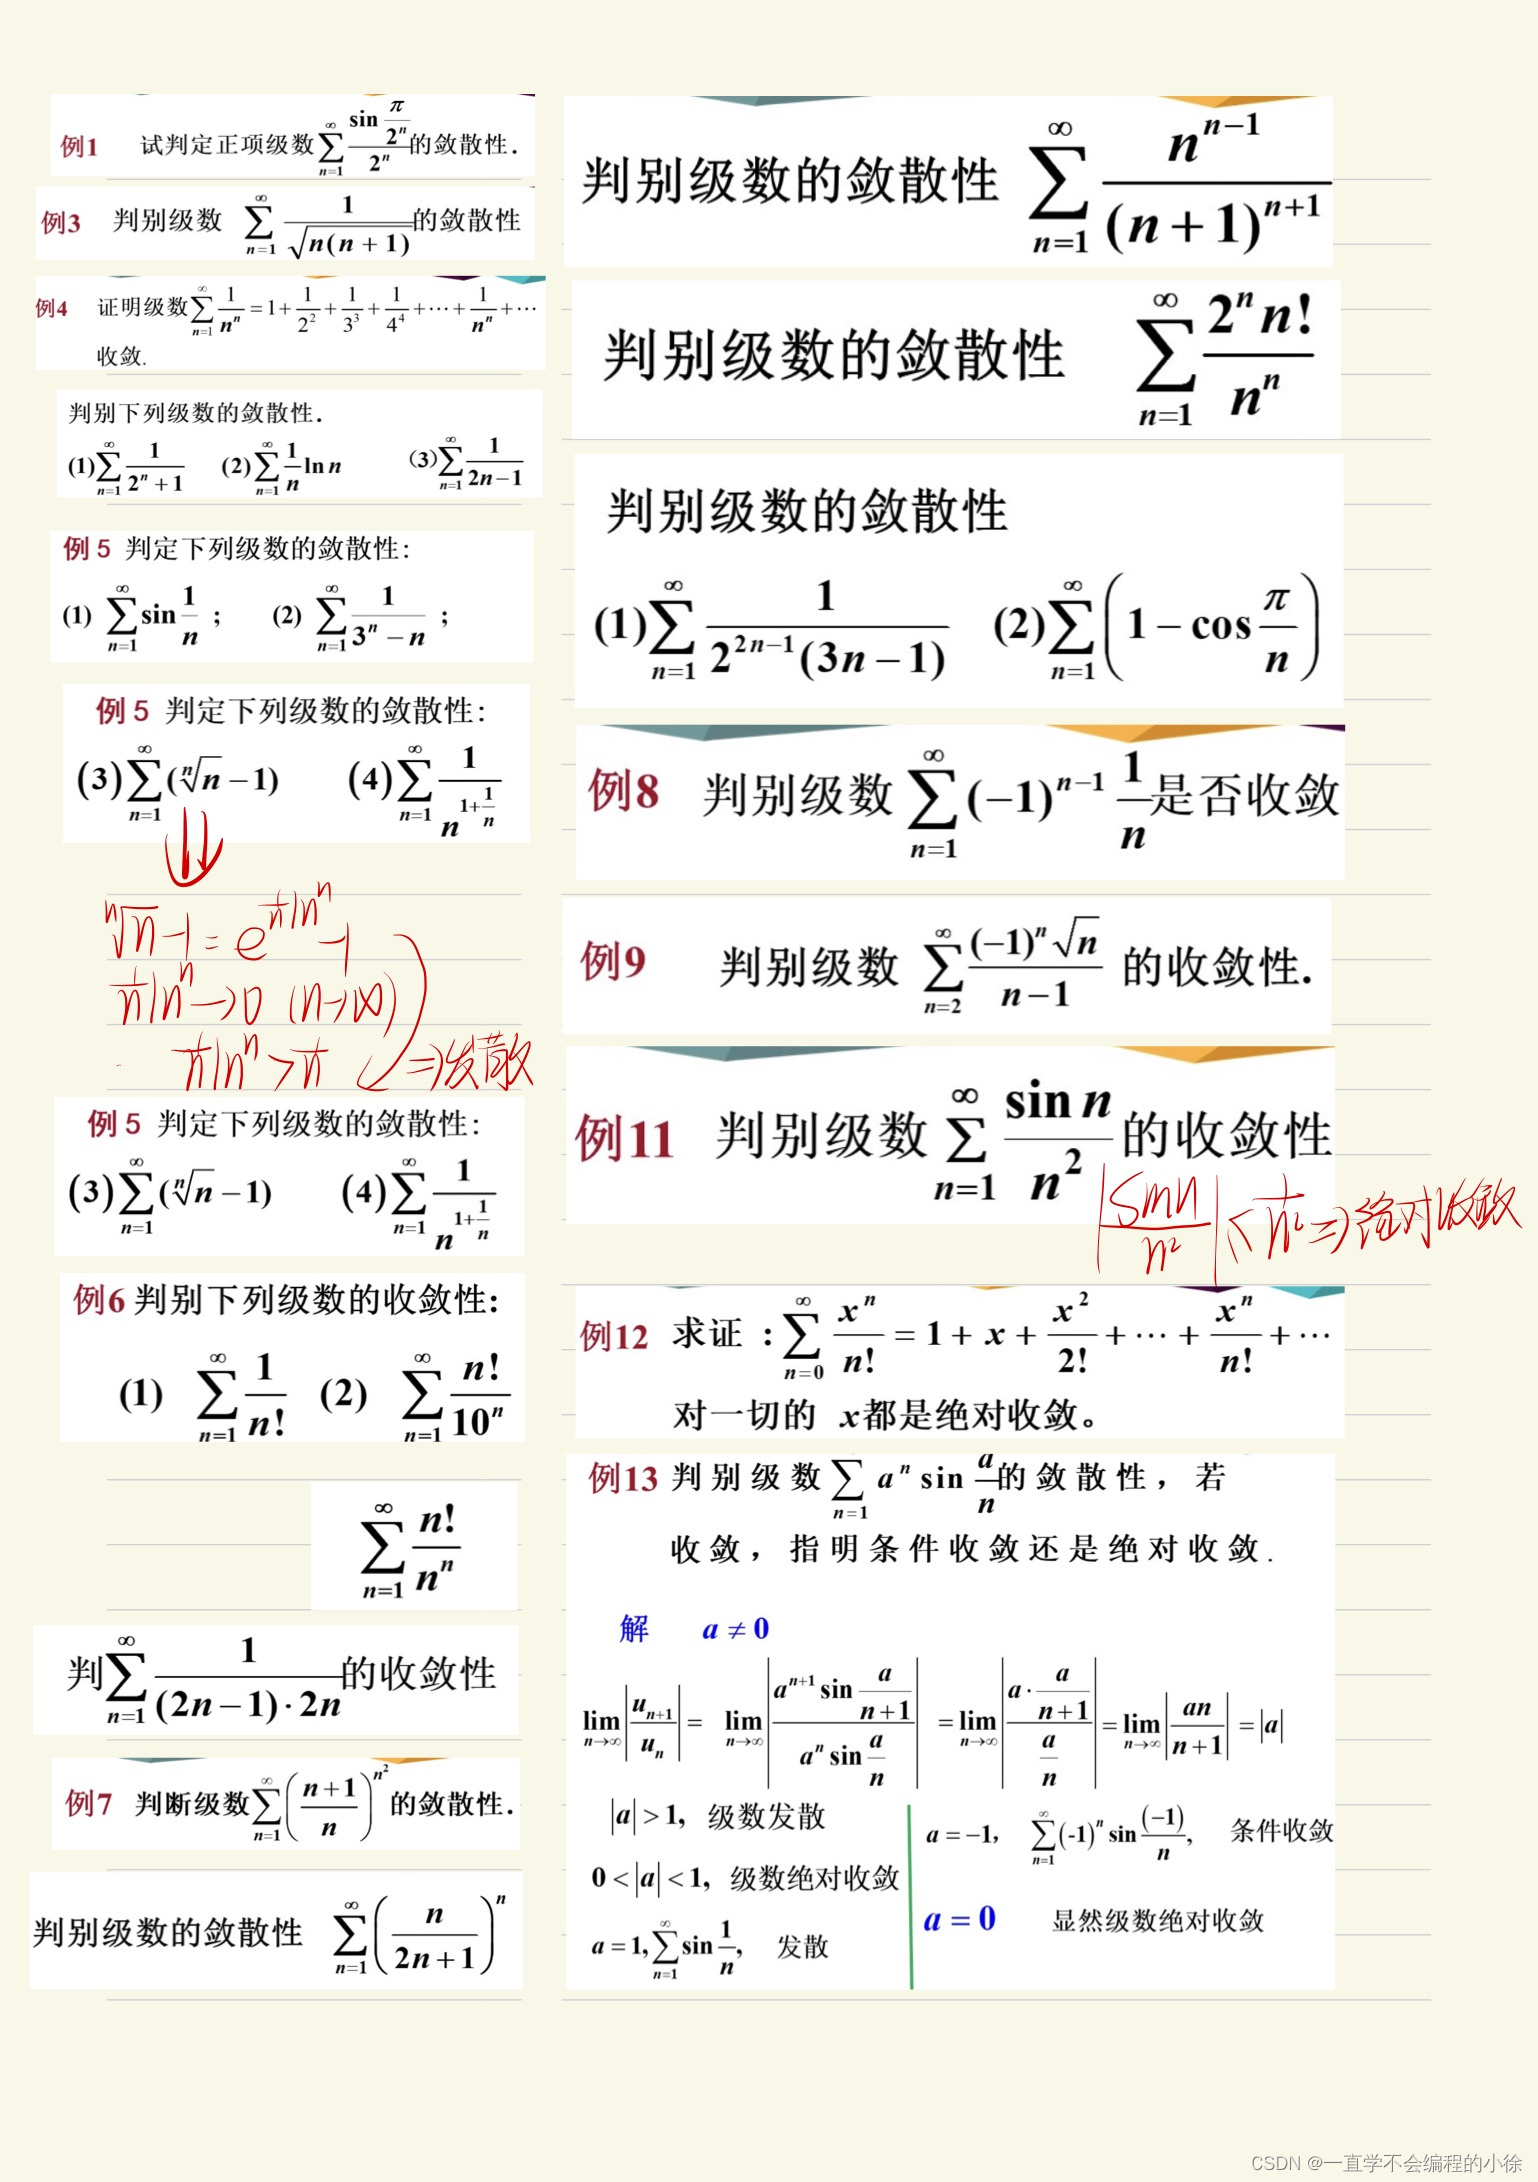 例1 试判定正项级数 $\sum_{n=1}^{\infty}\frac{\sin\frac{\pi}{2^n}}{2^n}$ 的敛散性.
例3 判别级数 $\sum_{n=1}^{\infty}\frac{1}{\sqrt{n(n+1)}}$ 的敛散性
例4 证明级数 $\sum_{n=1}^{\infty}\frac{1}{n^n}=1+\frac{1}{2^2}+\frac{1}{3^3}+\frac{1}{4^4}+\cdots+\frac{1}{n^n}+\cdots$
收敛.
判别下列级数的敛散性.
(1) $\sum_{n=1}^{\infty}\frac{1}{2^n+1}$ (2) $\sum_{n=1}^{\infty}\frac{1}{n}\ln n$ (3) $\sum_{n=1}^{\infty}\frac{1}{2n-1}$
例 5 判定下列级数的敛散性:
(1) $\sum_{n=1}^{\infty}\sin\frac{1}{n}$ ; (2) $\sum_{n=1}^{\infty}\frac{1}{3^n-n}$ ;
例 5 判定下列级数的敛散性:
(3) $\sum_{n=1}^{\infty}(\sqrt[n]{n}-1)$ (4) $\sum_{n=1}^{\infty}\frac{1}{n^{1+\frac{1}{n}}}$
$\sqrt[n]{n}-1=e^{\frac{1}{n}\ln n}-1$
$\frac{1}{n}\ln n\to 0\ (n\to\infty)$
$\frac{1}{n}\ln n>\frac{1}{n}$ ⇒发散
例 5 判定下列级数的敛散性:
(3) $\sum_{n=1}^{\infty}(\sqrt[n]{n}-1)$ (4) $\sum_{n=1}^{\infty}\frac{1}{n^{1+\frac{1}{n}}}$
例6 判别下列级数的收敛性:
(1) $\sum_{n=1}^{\infty}\frac{1}{n!}$ (2) $\sum_{n=1}^{\infty}\frac{n!}{10^n}$
$\sum_{n=1}^{\infty}\frac{n!}{n^n}$
判 $\sum_{n=1}^{\infty}\frac{1}{(2n-1)\cdot 2n}$ 的收敛性
例7 判断级数 $\sum_{n=1}^{\infty}\left(\frac{n+1}{n}\right)^{n^2}$ 的敛散性.
判别级数的敛散性 $\sum_{n=1}^{\infty}\left(\frac{n}{2n+1}\right)^n$
判别级数的敛散性 $\sum_{n=1}^{\infty}\frac{n^{n-1}}{(n+1)^{n+1}}$
判别级数的敛散性 $\sum_{n=1}^{\infty}\frac{2^n n!}{n^n}$
判别级数的敛散性
(1) $\sum_{n=1}^{\infty}\frac{1}{2^{2n-1}(3n-1)}$ (2) $\sum_{n=1}^{\infty}\left(1-\cos\frac{\pi}{n}\right)$
例8 判别级数 $\sum_{n=1}^{\infty}(-1)^{n-1}\frac{1}{n}$ 是否收敛
例9 判别级数 $\sum_{n=2}^{\infty}\frac{(-1)^n\sqrt{n}}{n-1}$ 的收敛性.
例11 判别级数 $\sum_{n=1}^{\infty}\frac{\sin n}{n^2}$ 的收敛性
$\left|\frac{\sin n}{n^2}\right|\le\frac{1}{n^2}$ ⇒绝对收敛
例12 求证 : $\sum_{n=0}^{\infty}\frac{x^n}{n!}=1+x+\frac{x^2}{2!}+\cdots+\frac{x^n}{n!}+\cdots$
对一切的 x都是绝对收敛。
例13 判别级数 $\sum_{n=1} a^n\sin\frac{a}{n}$ 的敛散性，若
收敛，指明条件收敛还是绝对收敛.
解 $a\neq 0$
$\lim_{n\to\infty}\left|\frac{u_{n+1}}{u_n}\right|=\lim_{n\to\infty}\left|\frac{a^{n+1}\sin\frac{a}{n+1}}{a^n\sin\frac{a}{n}}\right|=\lim_{n\to\infty}\left|\frac{a\cdot\frac{a}{n+1}}{\frac{a}{n}}\right|=\lim_{n\to\infty}\left|\frac{an}{n+1}\right|=|a|$
$|a|>1,$ 级数发散
$0<|a|<1,$ 级数绝对收敛
$a=1,\sum_{n=1}^{\infty}\sin\frac{1}{n},$ 发散
$a=-1,\ \sum_{n=1}^{\infty}(-1)^n\sin\frac{(-1)}{n},$ 条件收敛
$a=0$ 显然级数绝对收敛
CSDN @一直学不会编程的小徐